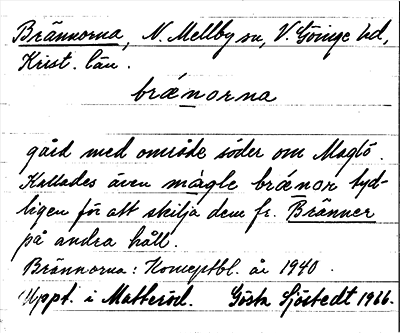 Brännorna, N. Mellby sn, V. Göinge hd,
Krist. län.
brǽnorna
gård med område söder om Maglö.
Kallades även mágle brǽnor tyd-
ligen för att skilja dem fr. Bränner
på andra håll.
Brännorna: Konceptbl. år 1940.
Uppt. i Matteröd. Gösta Sjöstedt 1966.